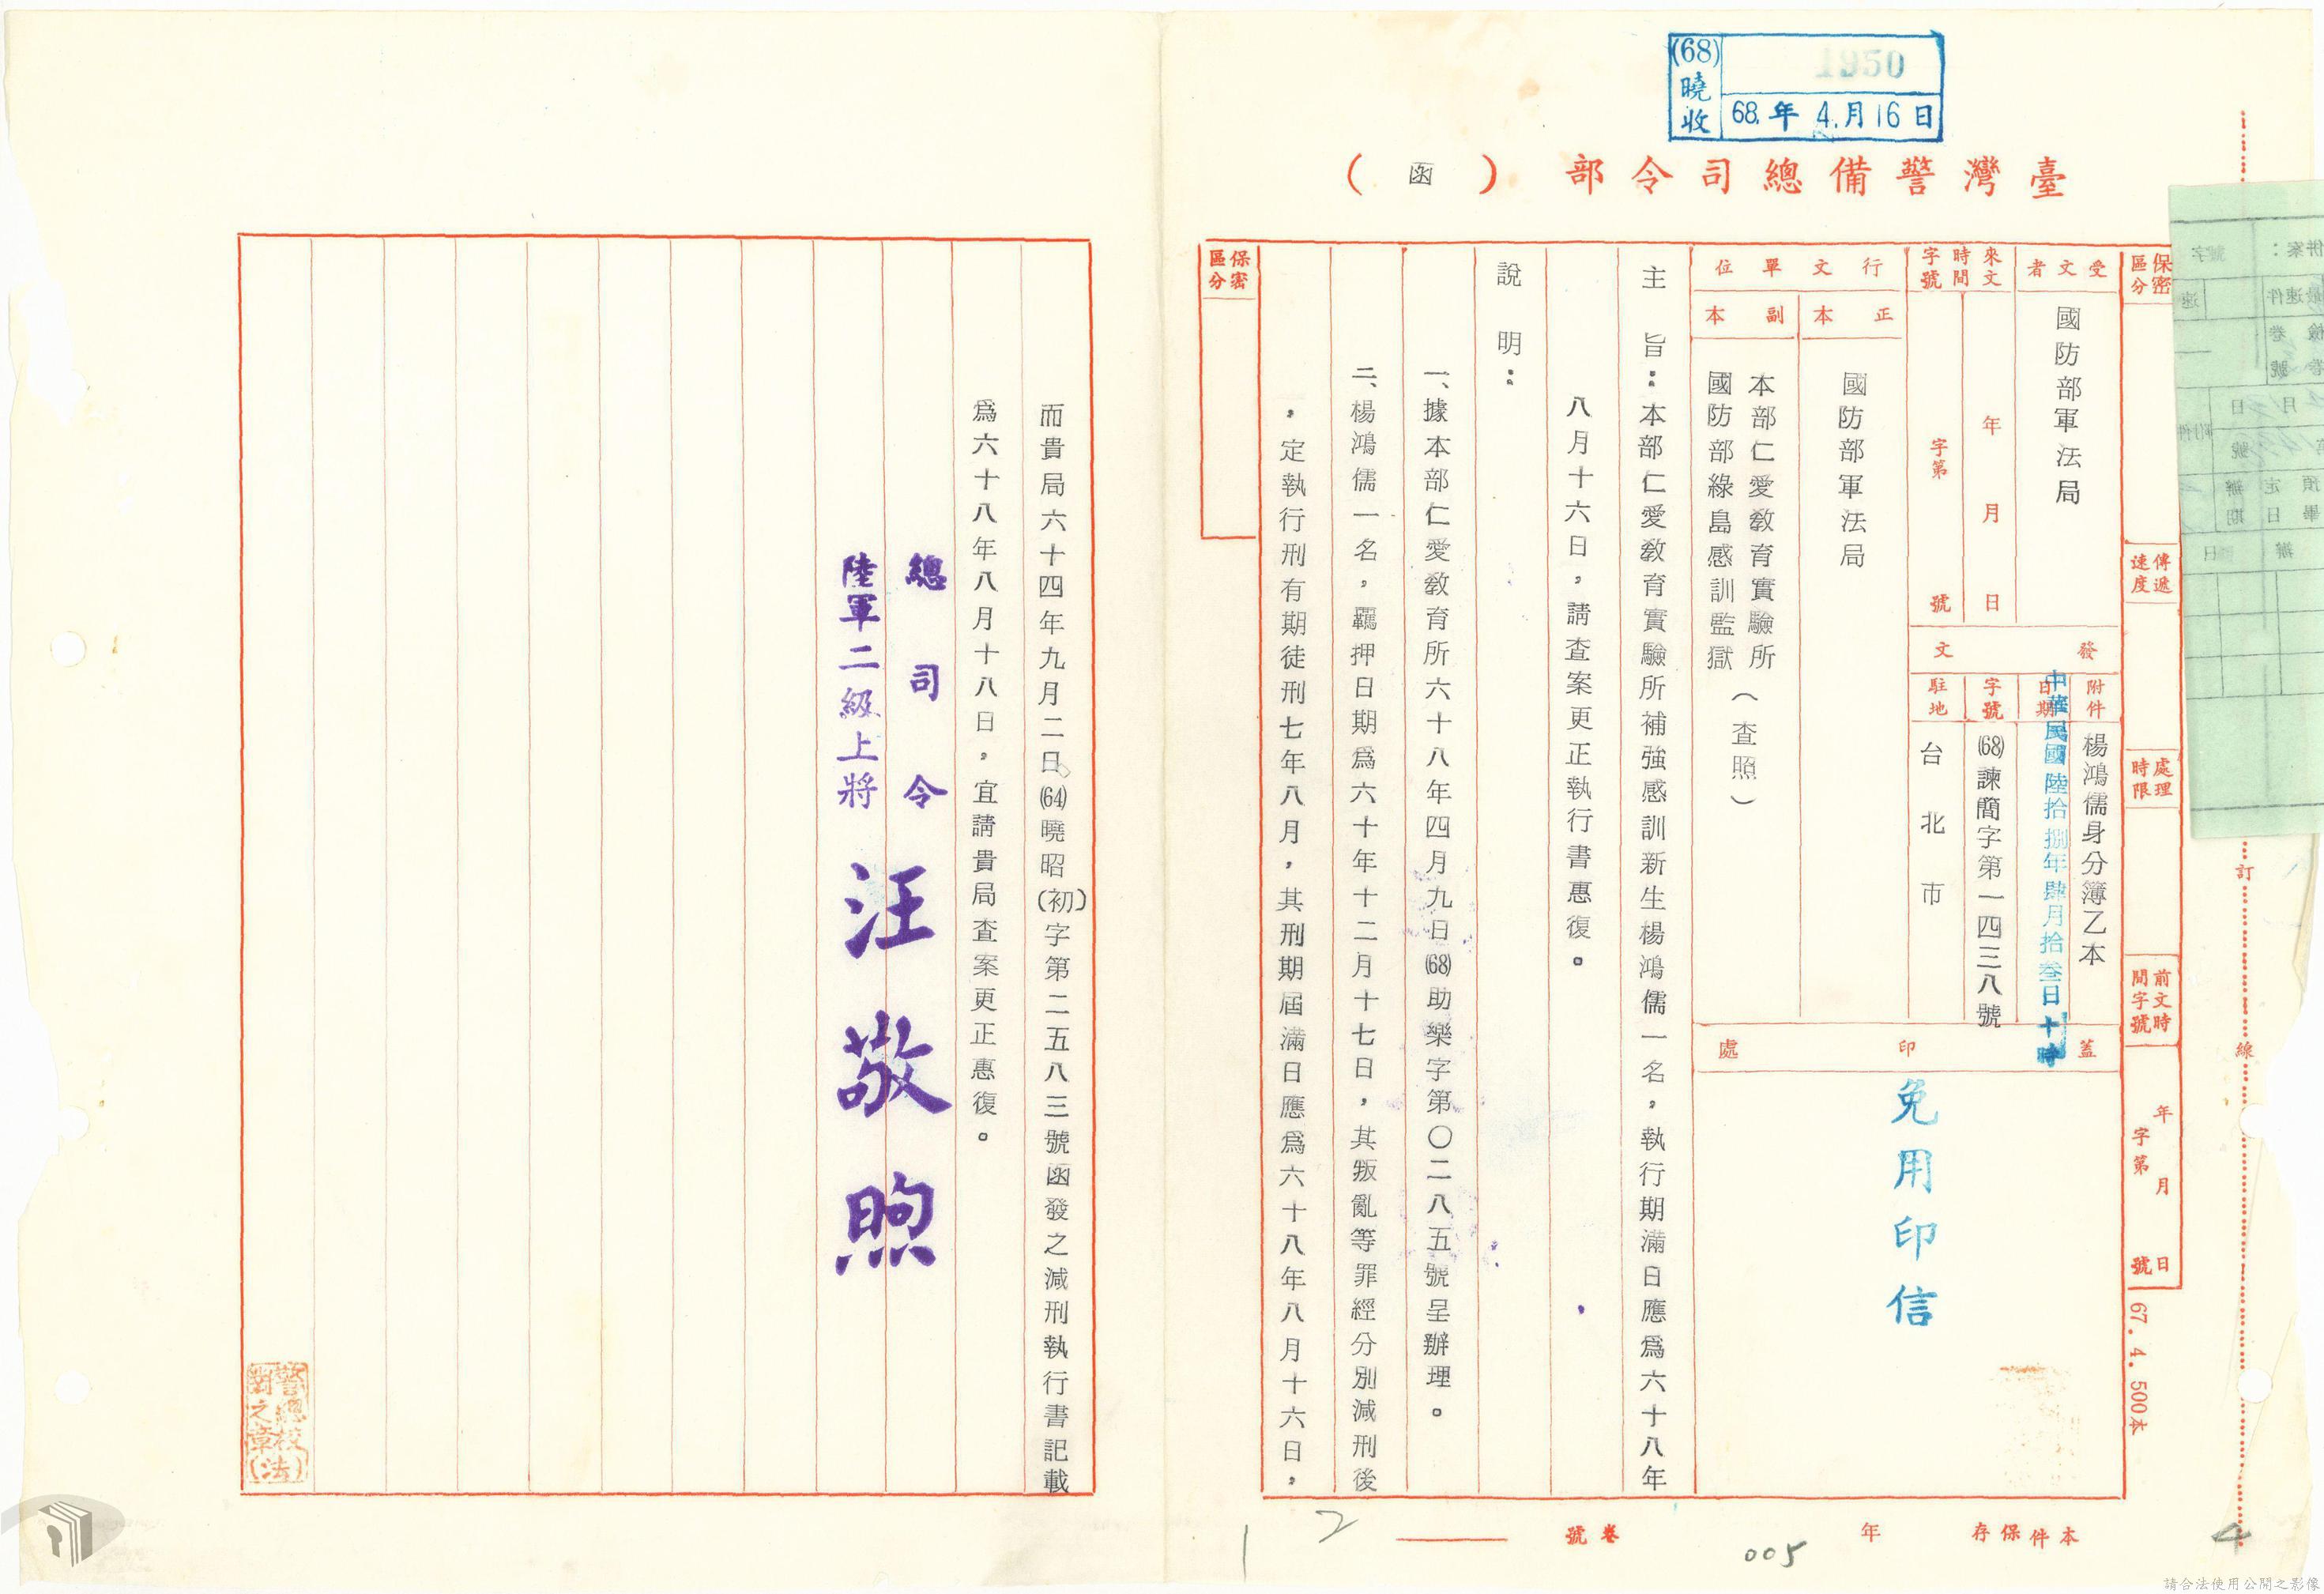 (68)
曉收
1950
68.年4.月16日
臺灣警備總司令部(函)
保密區分
傳遞速度
處理時限
前文時間字號
年月日
字第號
67.4.500本
受文者
國防部軍法局
來文時間字號
年月日
字第號
發文
附件
楊鴻儒身分簿乙本
日期
中華民國陸拾捌年肆月拾叁日十時
字號
(68)諫簡字第一四三八號
駐地
台北市
行文單位
正本
國防部軍法局
副本
本部仁愛教育實驗所
國防部綠島感訓監獄
(查照)
蓋印處
免用印信
主旨:本部仁愛教育實驗所補強感訓新生楊鴻儒一名,執行期滿日應為六十八年
八月十六日,請查案更正執行書惠復。
說明:
一、據本部仁愛教育所六十八年四月九日(68)助樂字第〇二八五號呈辦理。
二、楊鴻儒一名,羈押日期為六十年十二月十七日,其叛亂等罪經分別減刑後
,定執行刑有期徒刑七年八月,其刑期屆滿日應為六十八年八月十六日,
保密區分
而貴局六十四年九月二日(64)曉昭(初)字第二五八三號函發之減刑執行書記載
為六十八年八月十八日,宜請貴局查案更正惠復。
總司令
陸軍二級上將汪敬煦
警總校對之章(法)
訂
線
本件保存年
卷號
005
1
2
4
請合法使用公開之影像